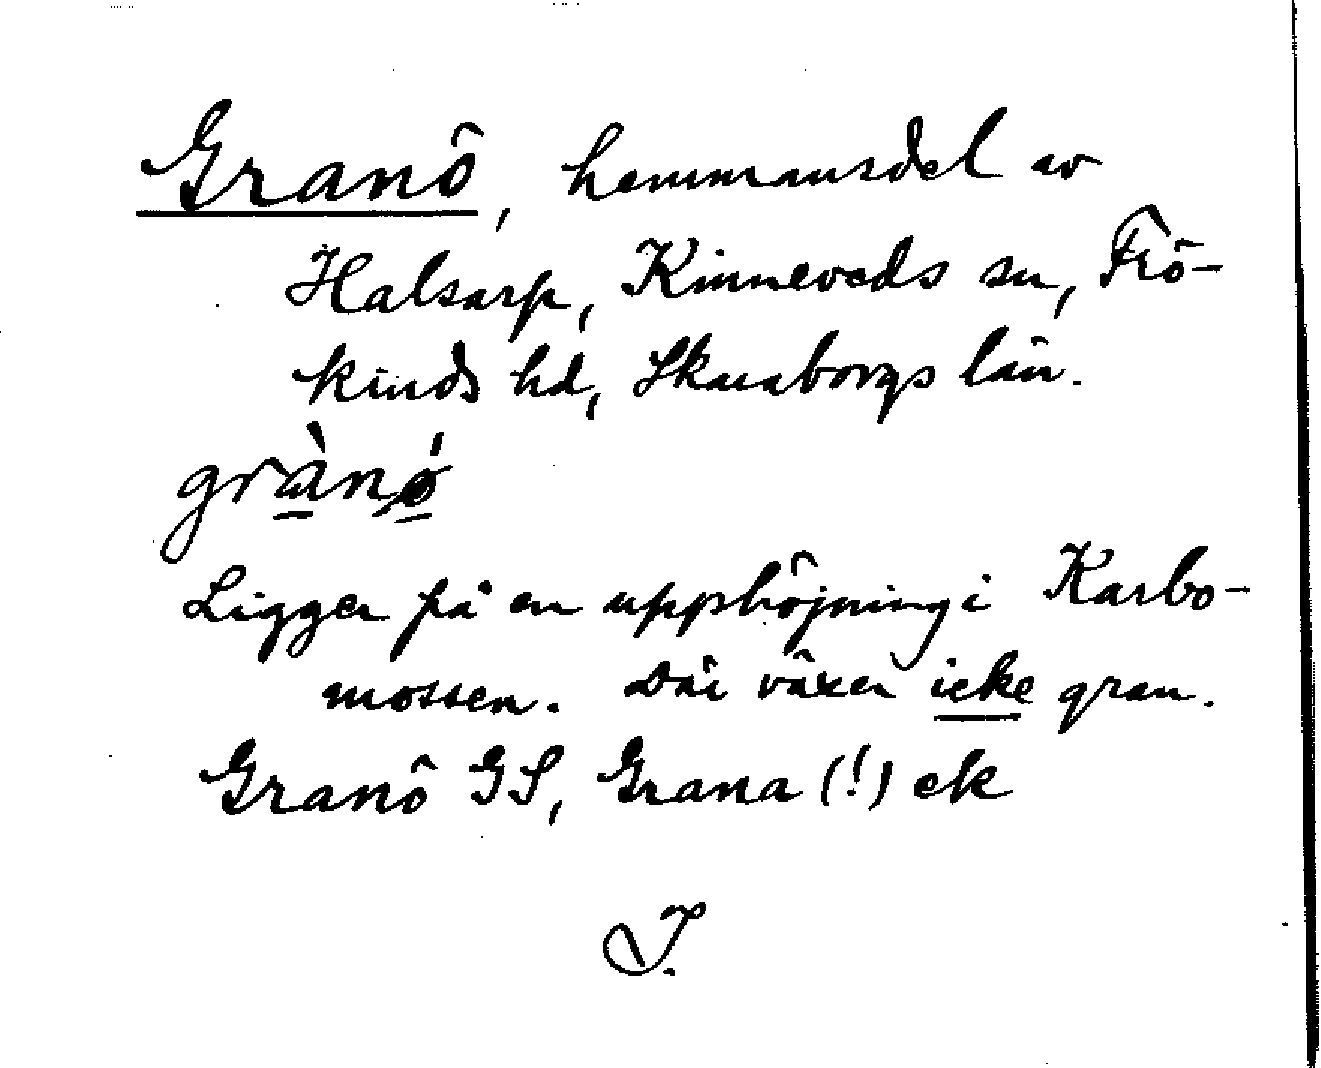 Granö, hemmansdel av
Halsarp, Kinneveds sn, Frö-
kinds hd, Skaraborgs län.
grànǿ
Ligger på en upphöjning i Karbo-
mossen. Där växer icke gran.
Granö GS, Grana (!) ek